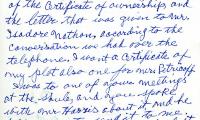 of the Certificate of ownerships and
the letter that was given to Mr.
Isadore Nathans, according to the
conversation we had over the
telephone. I want a Certificate of
my plot also one for Mrs Petricoff
I was to one of your meetings
at the Shule, and you spoke
with Mr Harris about it and he
to me